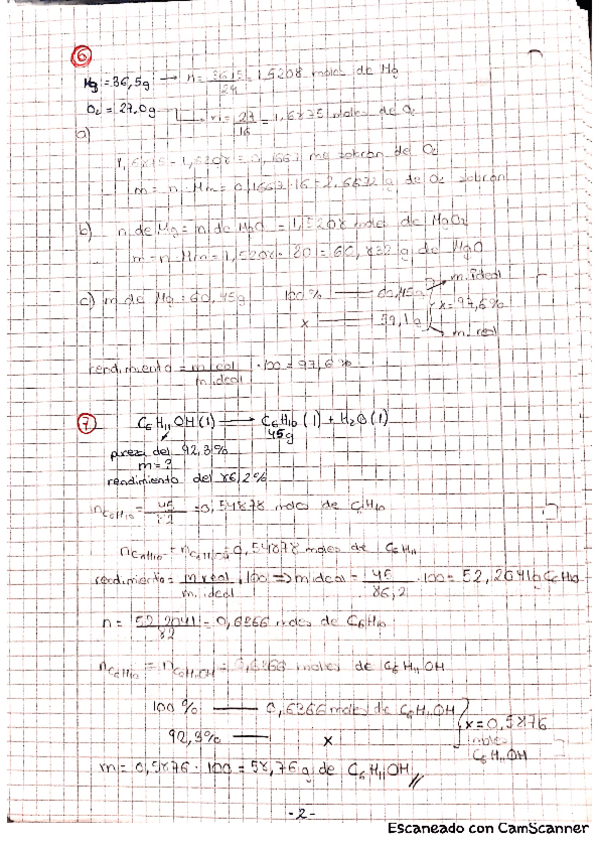 6
Mg = 36,5g → n = 36,5/24 = 1,5208 moles de Mg
O₂ = 27,0g → n = 27/16 = 1,6875 moles de O₂
a)
1,6875 - 1,5208 = 0,1667 mo sobran de O₂
m = n · Mm = 0,1667 · 16 = 2,6672 g de O₂ sobran
b) n de Mg = n de MgO = 1,5208 moles de MgO₂
m = n · Mm = 1,5208 · 40 = g de MgO
c) m de Mg = 60,45g 100% — 60,45g → m. ideal
x = 97,6%
x — 59,1g → m. real
rendimiento = m real / m ideal · 100 = 97,6%
7 C₆H₁₁OH(l) → C₆H₁₀(l) + H₂O(l)
45g
pureza del 92,3%
m = ?
rendimiento del 86,2%
nC₆H₁₀ = 45/82 = 0,54878 moles de C₆H₁₀
= 0,54878 moles de C₆H₁₁
rendimiento = m real / m. ideal · 100 => m ideal = 45/86,2 · 100 = 52,2041g C₆H₁₀
n = 52,2041/82 = 0,6366 moles de C₆H₁₀
nC₆H₁₀ = nC₆H₁₁OH = 0,6366 moles de C₆H₁₁OH
100% — 0,6366 moles de C₆H₁₁OH
x = 0,5876
92,3% — x
moles
C₆H₁₁OH
m = 0,5876 · 100 = 58,76g de C₆H₁₁OH //
-2-
Escaneado con CamScanner